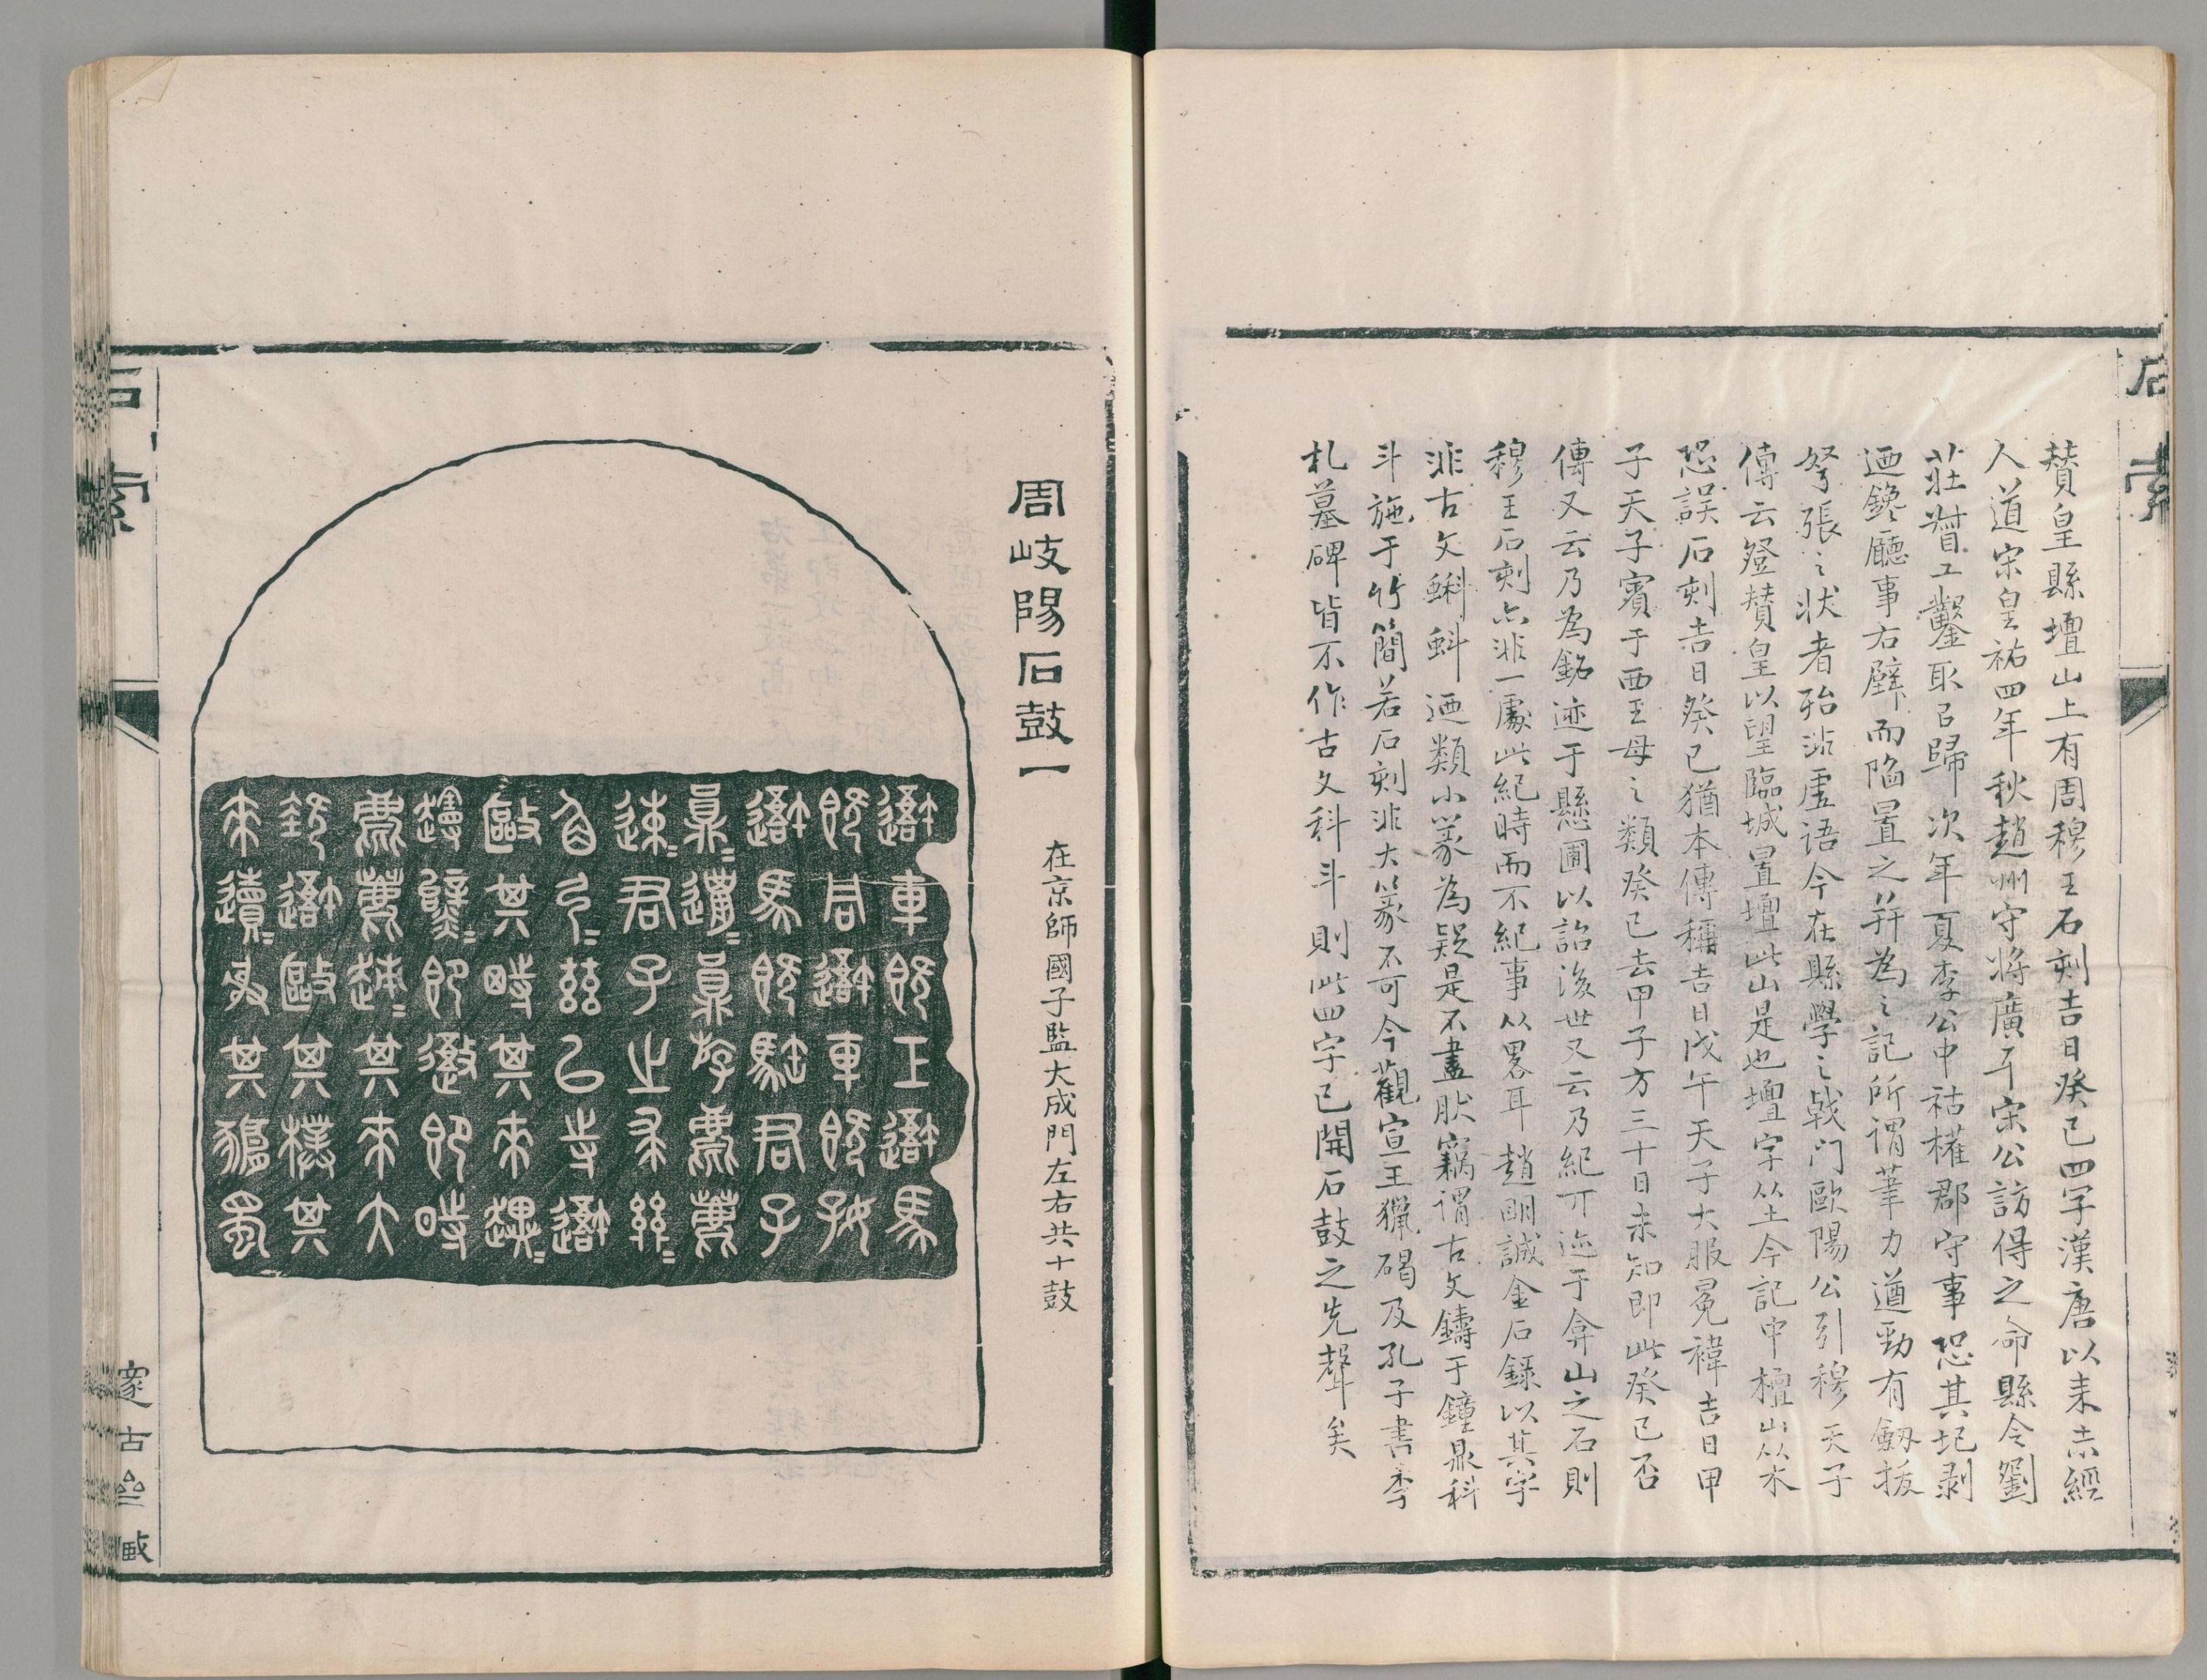 石索
贊皇縣壇山上有周穆王石刻吉日癸巳四字漢唐以来未經
人道宋皇祐四年秋趙州守將廣平宋公訪得之命縣令劉
莊督工鑿取㠯歸次年夏李公中祐權郡守事恐其圮剥
迺鑱廳事右壁而陷置之并為之記所謂筆力遒勁有劒拔
弩張之状者殆非虚語今在縣學之戟门歐陽公引穆天子
傳云登贊皇以望臨城置壇此山是也壇字从土今記中檀山从木
恐誤石刻吉日癸巳猶本傳稱吉日戊午天子大服冕禕吉日甲
子天子賓于西王母之類癸巳去甲子方三十日未知即此癸巳否
傳又云乃為銘迹于懸圃以詔後世又云乃紀丌迹于弇山之石則
穆王石刻亦非一處此紀時而不紀事从畧耳趙明誠金石録以其字
非古文蝌蚪迺類小篆為疑是不盡肰竊谓古文鑄于鐘鼎科
斗施于竹簡若石刻非大篆不可今觀宣王獵碣及孔子書季
札墓碑皆不作古文科斗則此四字已開石鼓之先聲矣
周岐陽石鼓一
在京師國子監大成門左右共十鼓
車既工馬
既同車既好
馬既駐君子
員邋員斿麀鹿
速君子之求
兹以寺
敺其時其来
即即時
麀鹿其来大
敺其樸其
来其蜀
石索
邃古亝臧